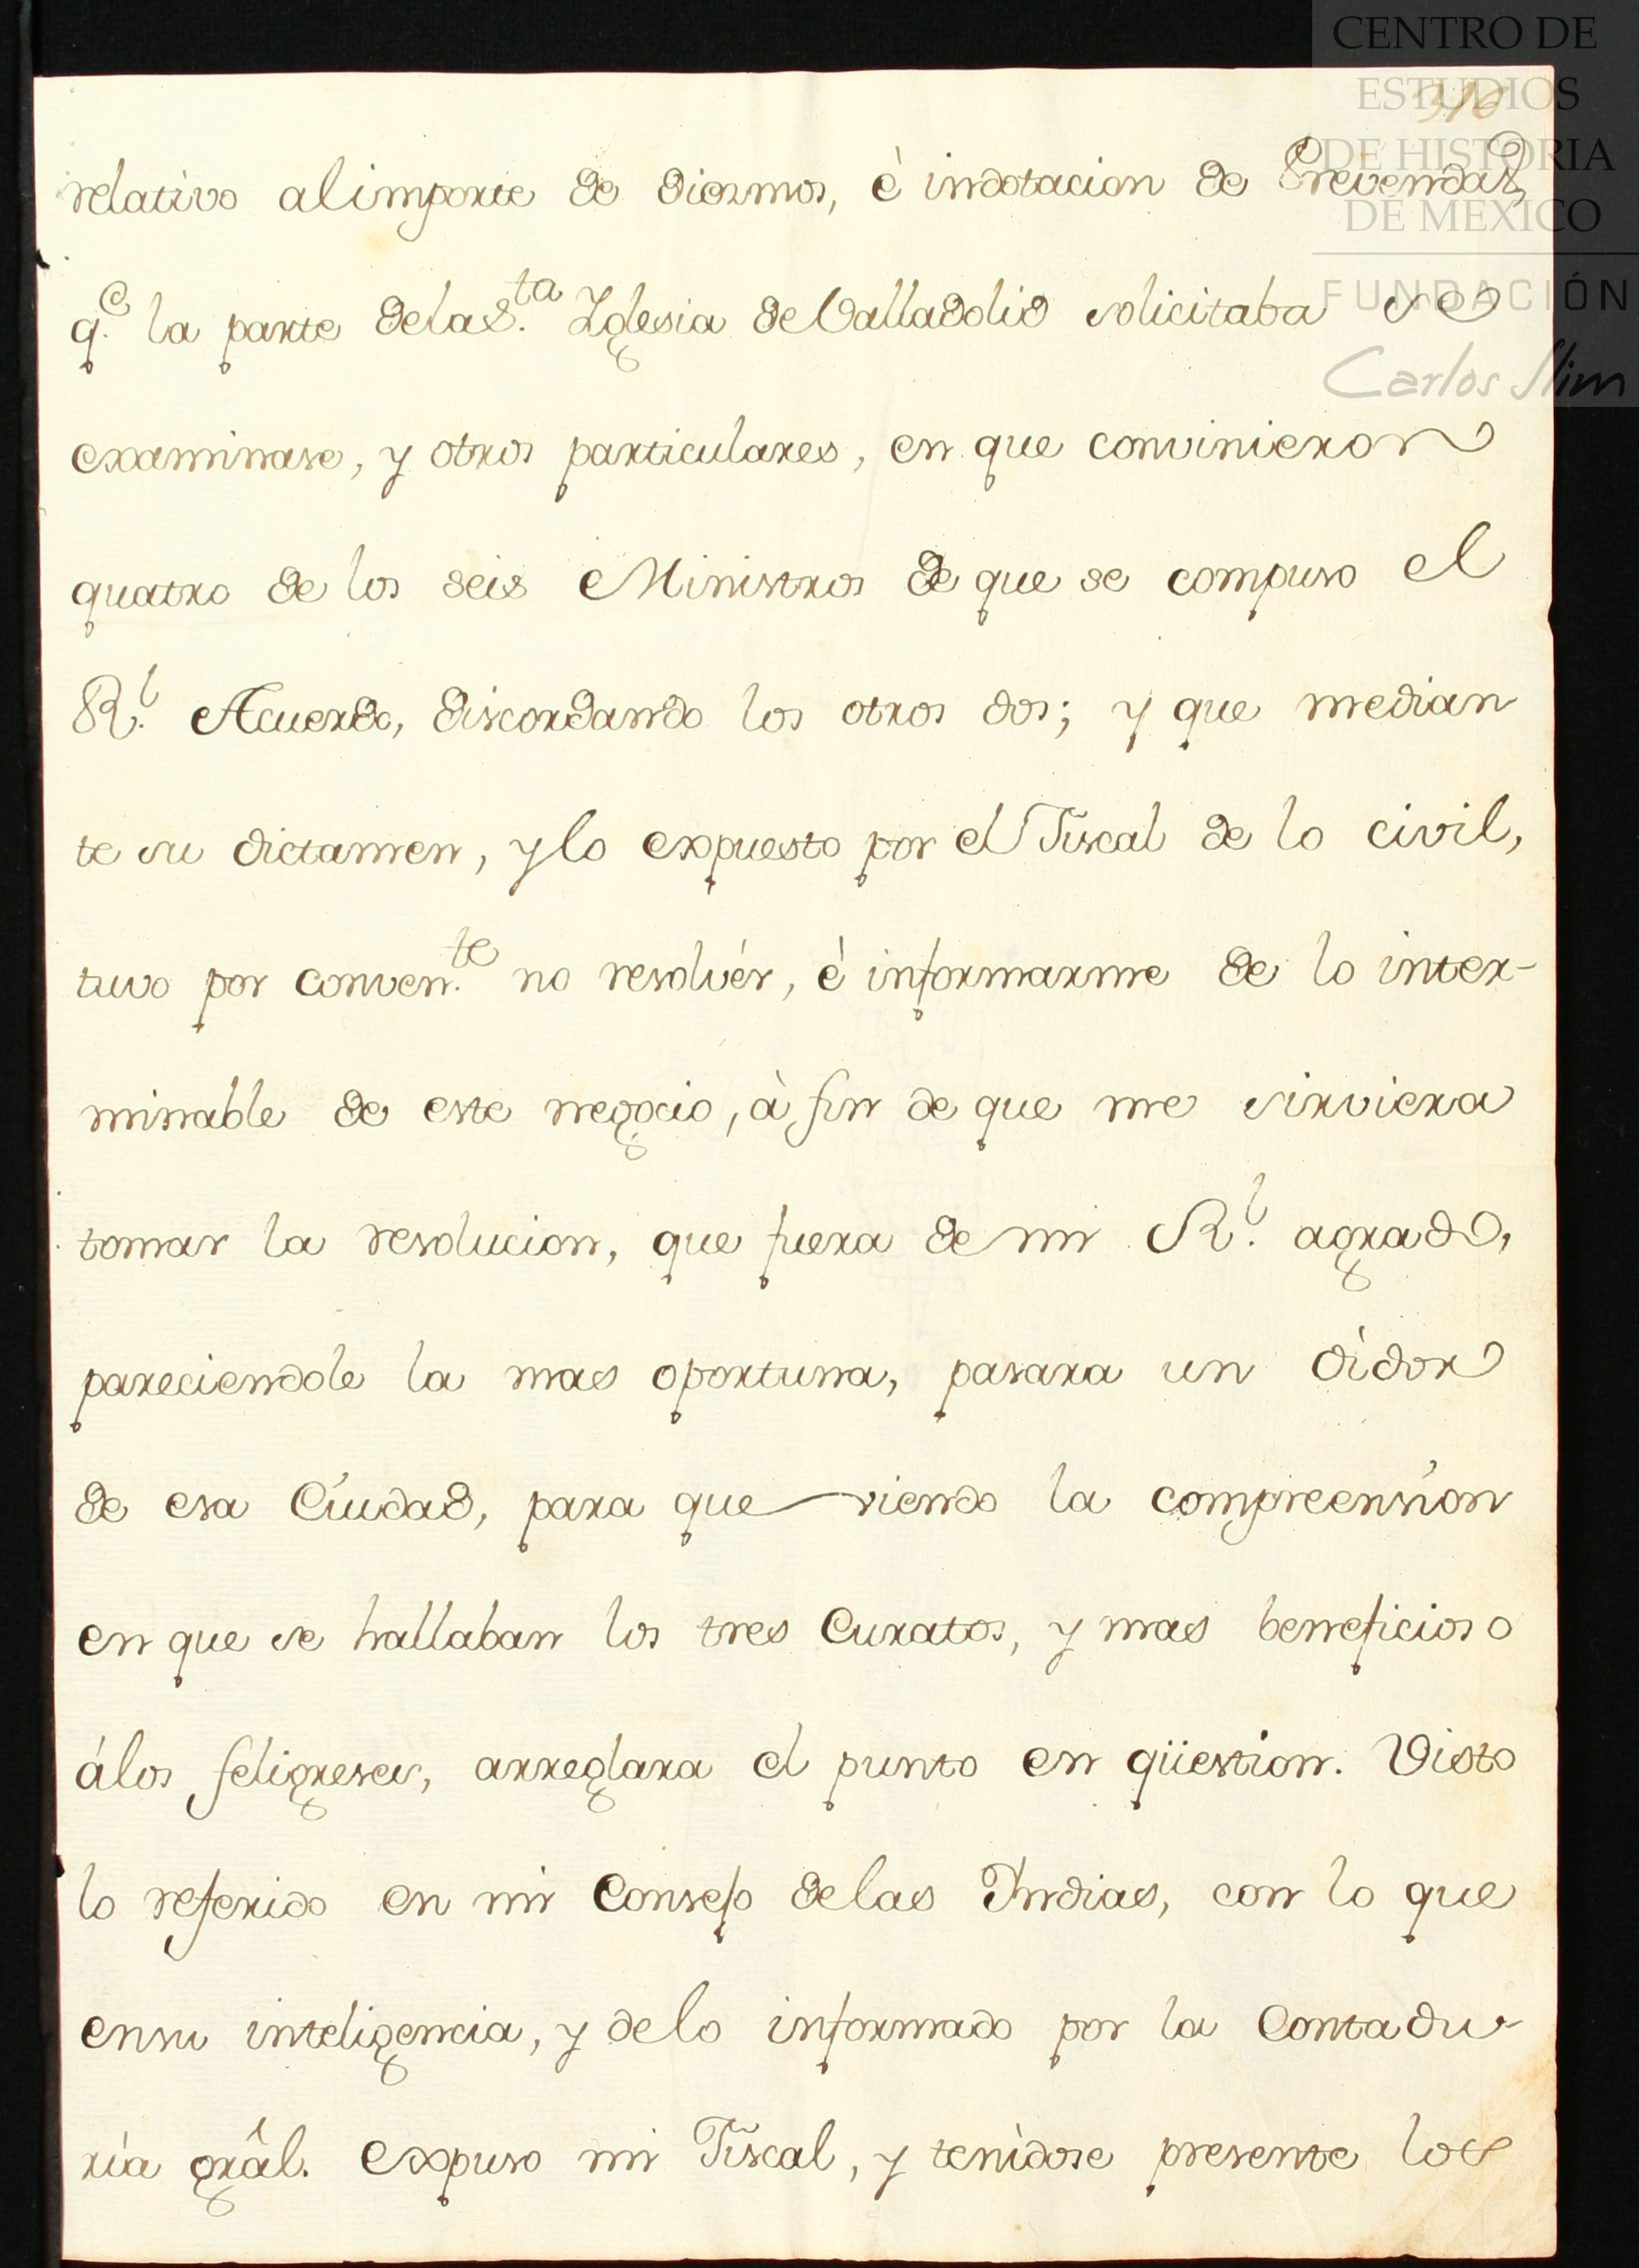 CENTRO DE
ESTUDIOS
DE HISTORIA
DE MEXICO
FUNDACIÓN
Carlos Slim
316
relativo al importe de diezmos, è indotacion de Prevendas
q.e la parte dela S.ta Yglesia de Valladolid solicitaba se
examinase, y otros particulares, en que convinieron
quatro de los seis Ministros de que se compuso el
R.l Acuerdo, discordando los otros dos; y que median
te su dictamen, y lo expuesto por el Fiscal de lo civil,
tuvo por conven.te no resolvér, è informarme de lo inter-
minable de este negocio, à fin de que me sirviera
tomar la resolucion, que fuera de mi R.l agrado,
pareciendole la mas oportuna, pasara un oìdor
de esa Ciudad, para que viendo la compreension
en que se hallaban los tres Curatos, y mas beneficioso
álos feligreses, arreglara el punto en qüestion. Visto
lo referido en mi Consejo delas Yndias, con lo que
ensu inteligencia, y delo informado por la Contadu-
rìa grâl. expuso mi Fiscal, y tenìdose presente los